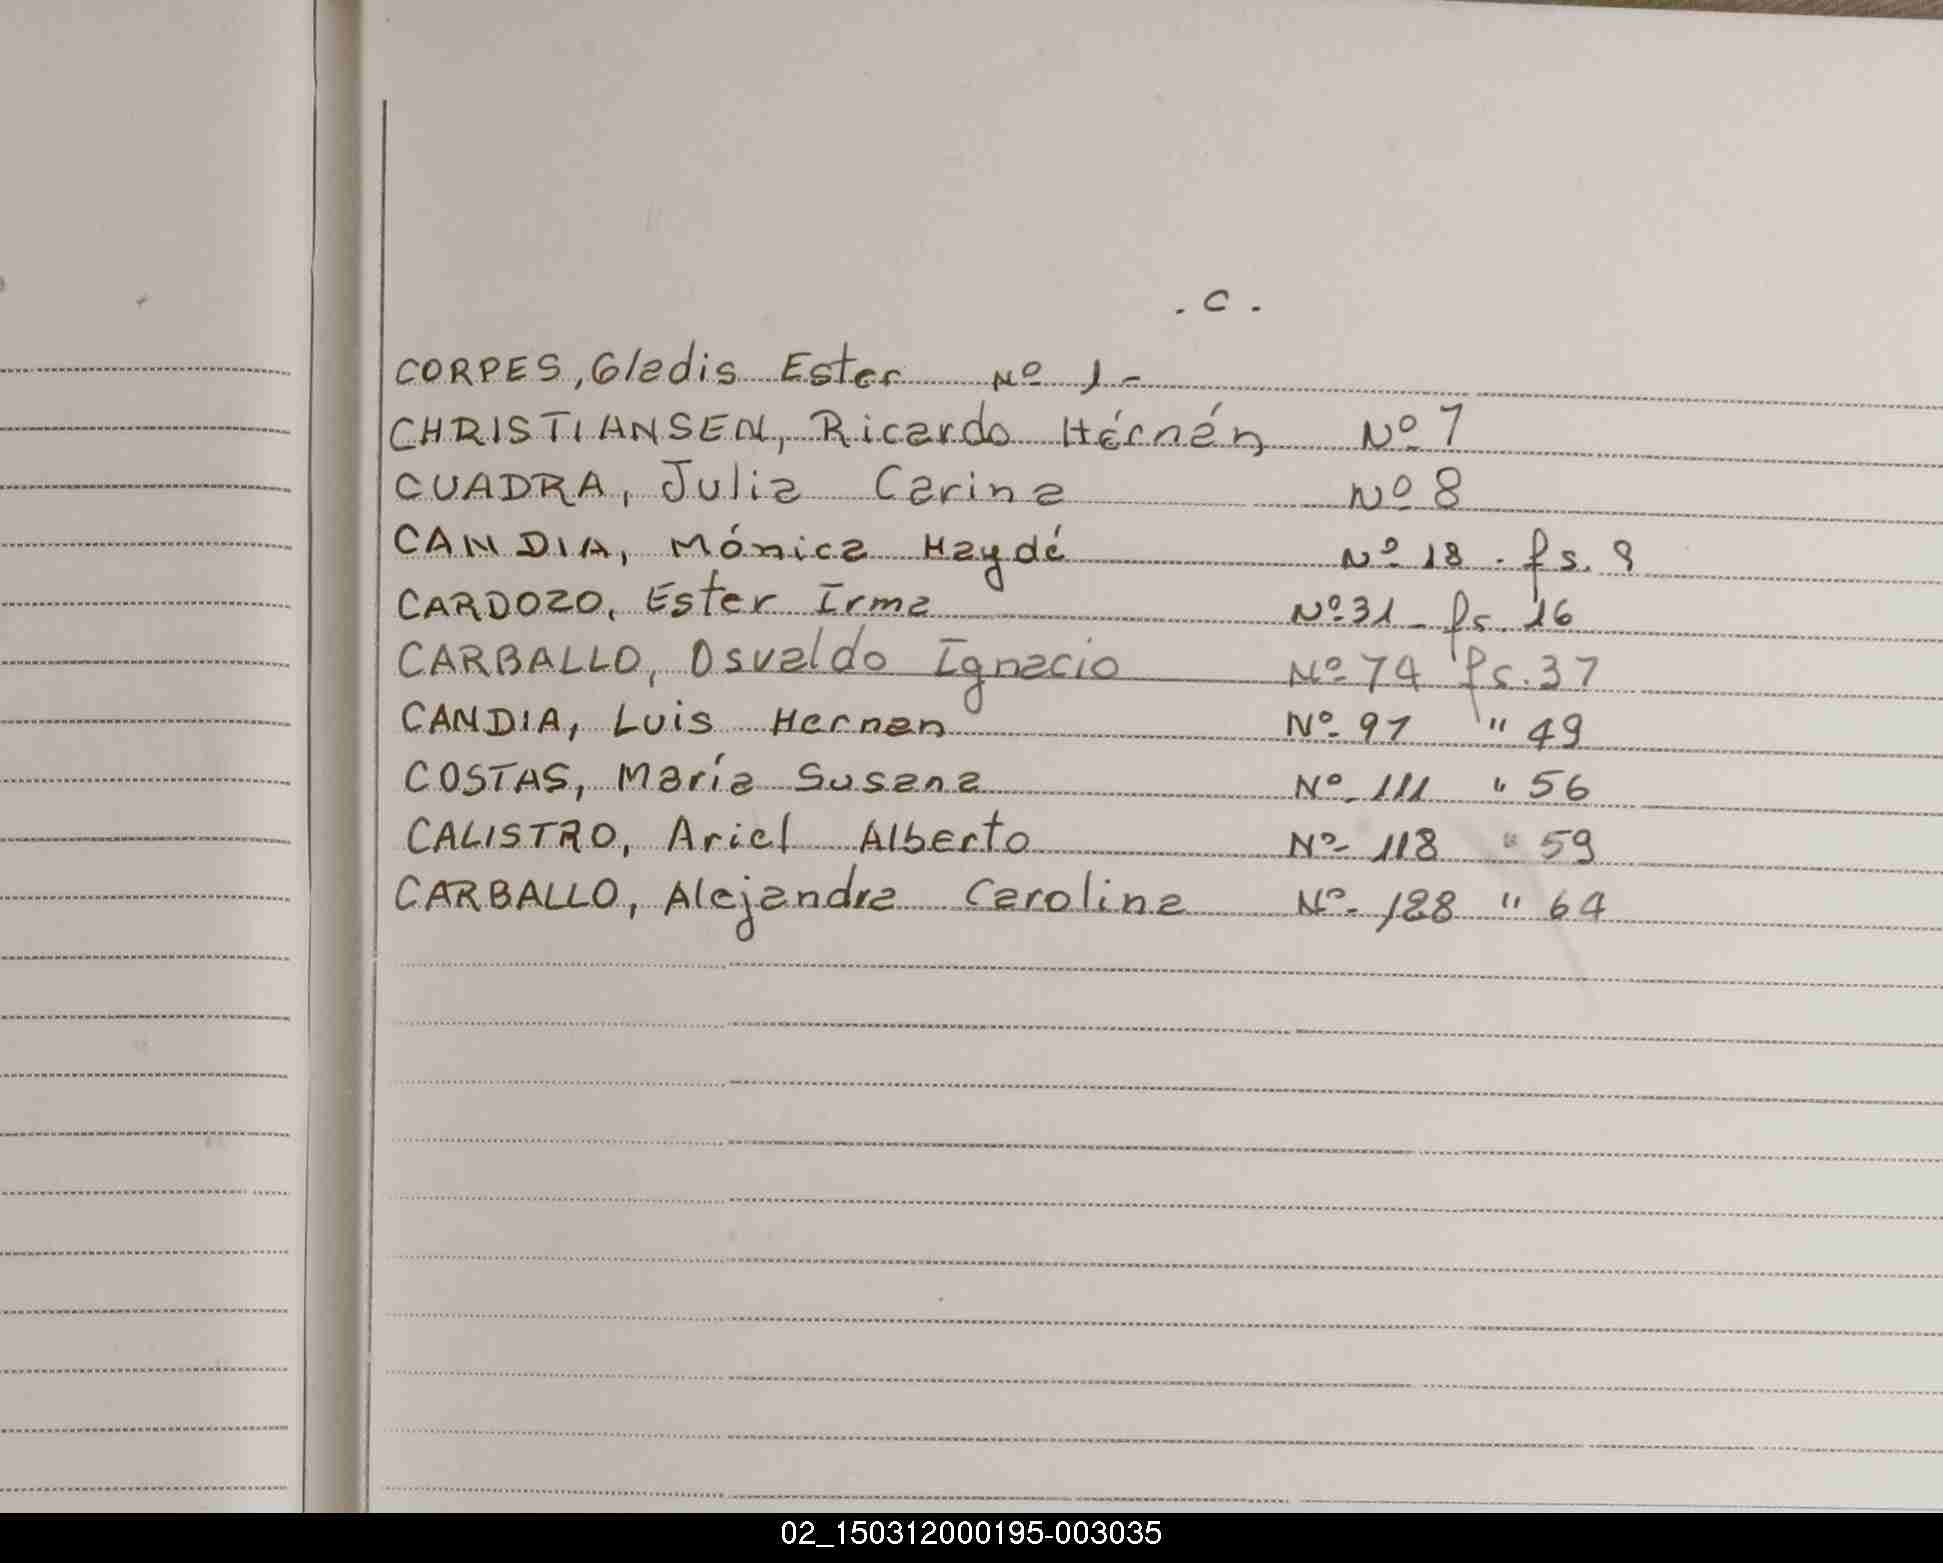 . C .
CORPES, Gladis Ester Nº 1-
CHRISTIANSEN, Ricardo Hérnán Nº 7
CUADRA, Julia Carina Nº 8
CANDIA, Mónica Haydé Nº 18 . fs. 9
CARDOZO, Ester Irma Nº 31 - fs. 16
CARBALLO, Osvaldo Ignacio Nº 74 fs. 37
CANDIA, Luis Hernan Nº 97 " 49
COSTAS, María Susana Nº 111 " 56
CALISTRO, Ariel Alberto Nº 118 " 59
CARBALLO, Alejandra Carolina Nº 128 " 64
02_150312000195-003035